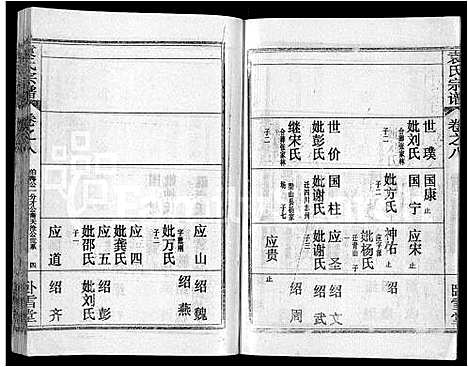 袁氏宗谱
卷之八
世璞
妣刘氏
合葬张家林
子二
世价
妣彭氏
继宋氏
合葬张家林
子二
国康
止
国宁
妣方氏
子二
国柱
妣谢氏
子二
应宋
止
神佑
止
妣杨氏
子一
应圣
妣谢氏
应贵
止
绍文
绍武
绍周
卧雪堂
袁氏宗谱
卷之八
四
应山
妣万氏
子一
应四
妣龚氏
子一
应五
妣邵氏
子二
应道
绍魏
绍燕
绍彭
妣刘氏
绍齐
卧雪堂